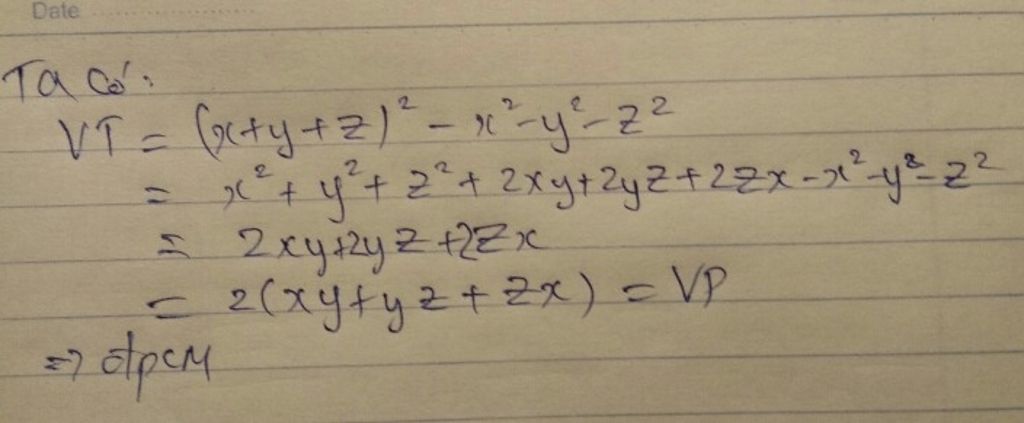 Date
Ta có:
VT = (x+y+z)² - x² - y² - z²
= x² + y² + z² + 2xy + 2yz + 2zx - x² - y² - z²
= 2xy + 2yz + 2zx
= 2(xy + yz + zx) = VP
⇒ đpcm